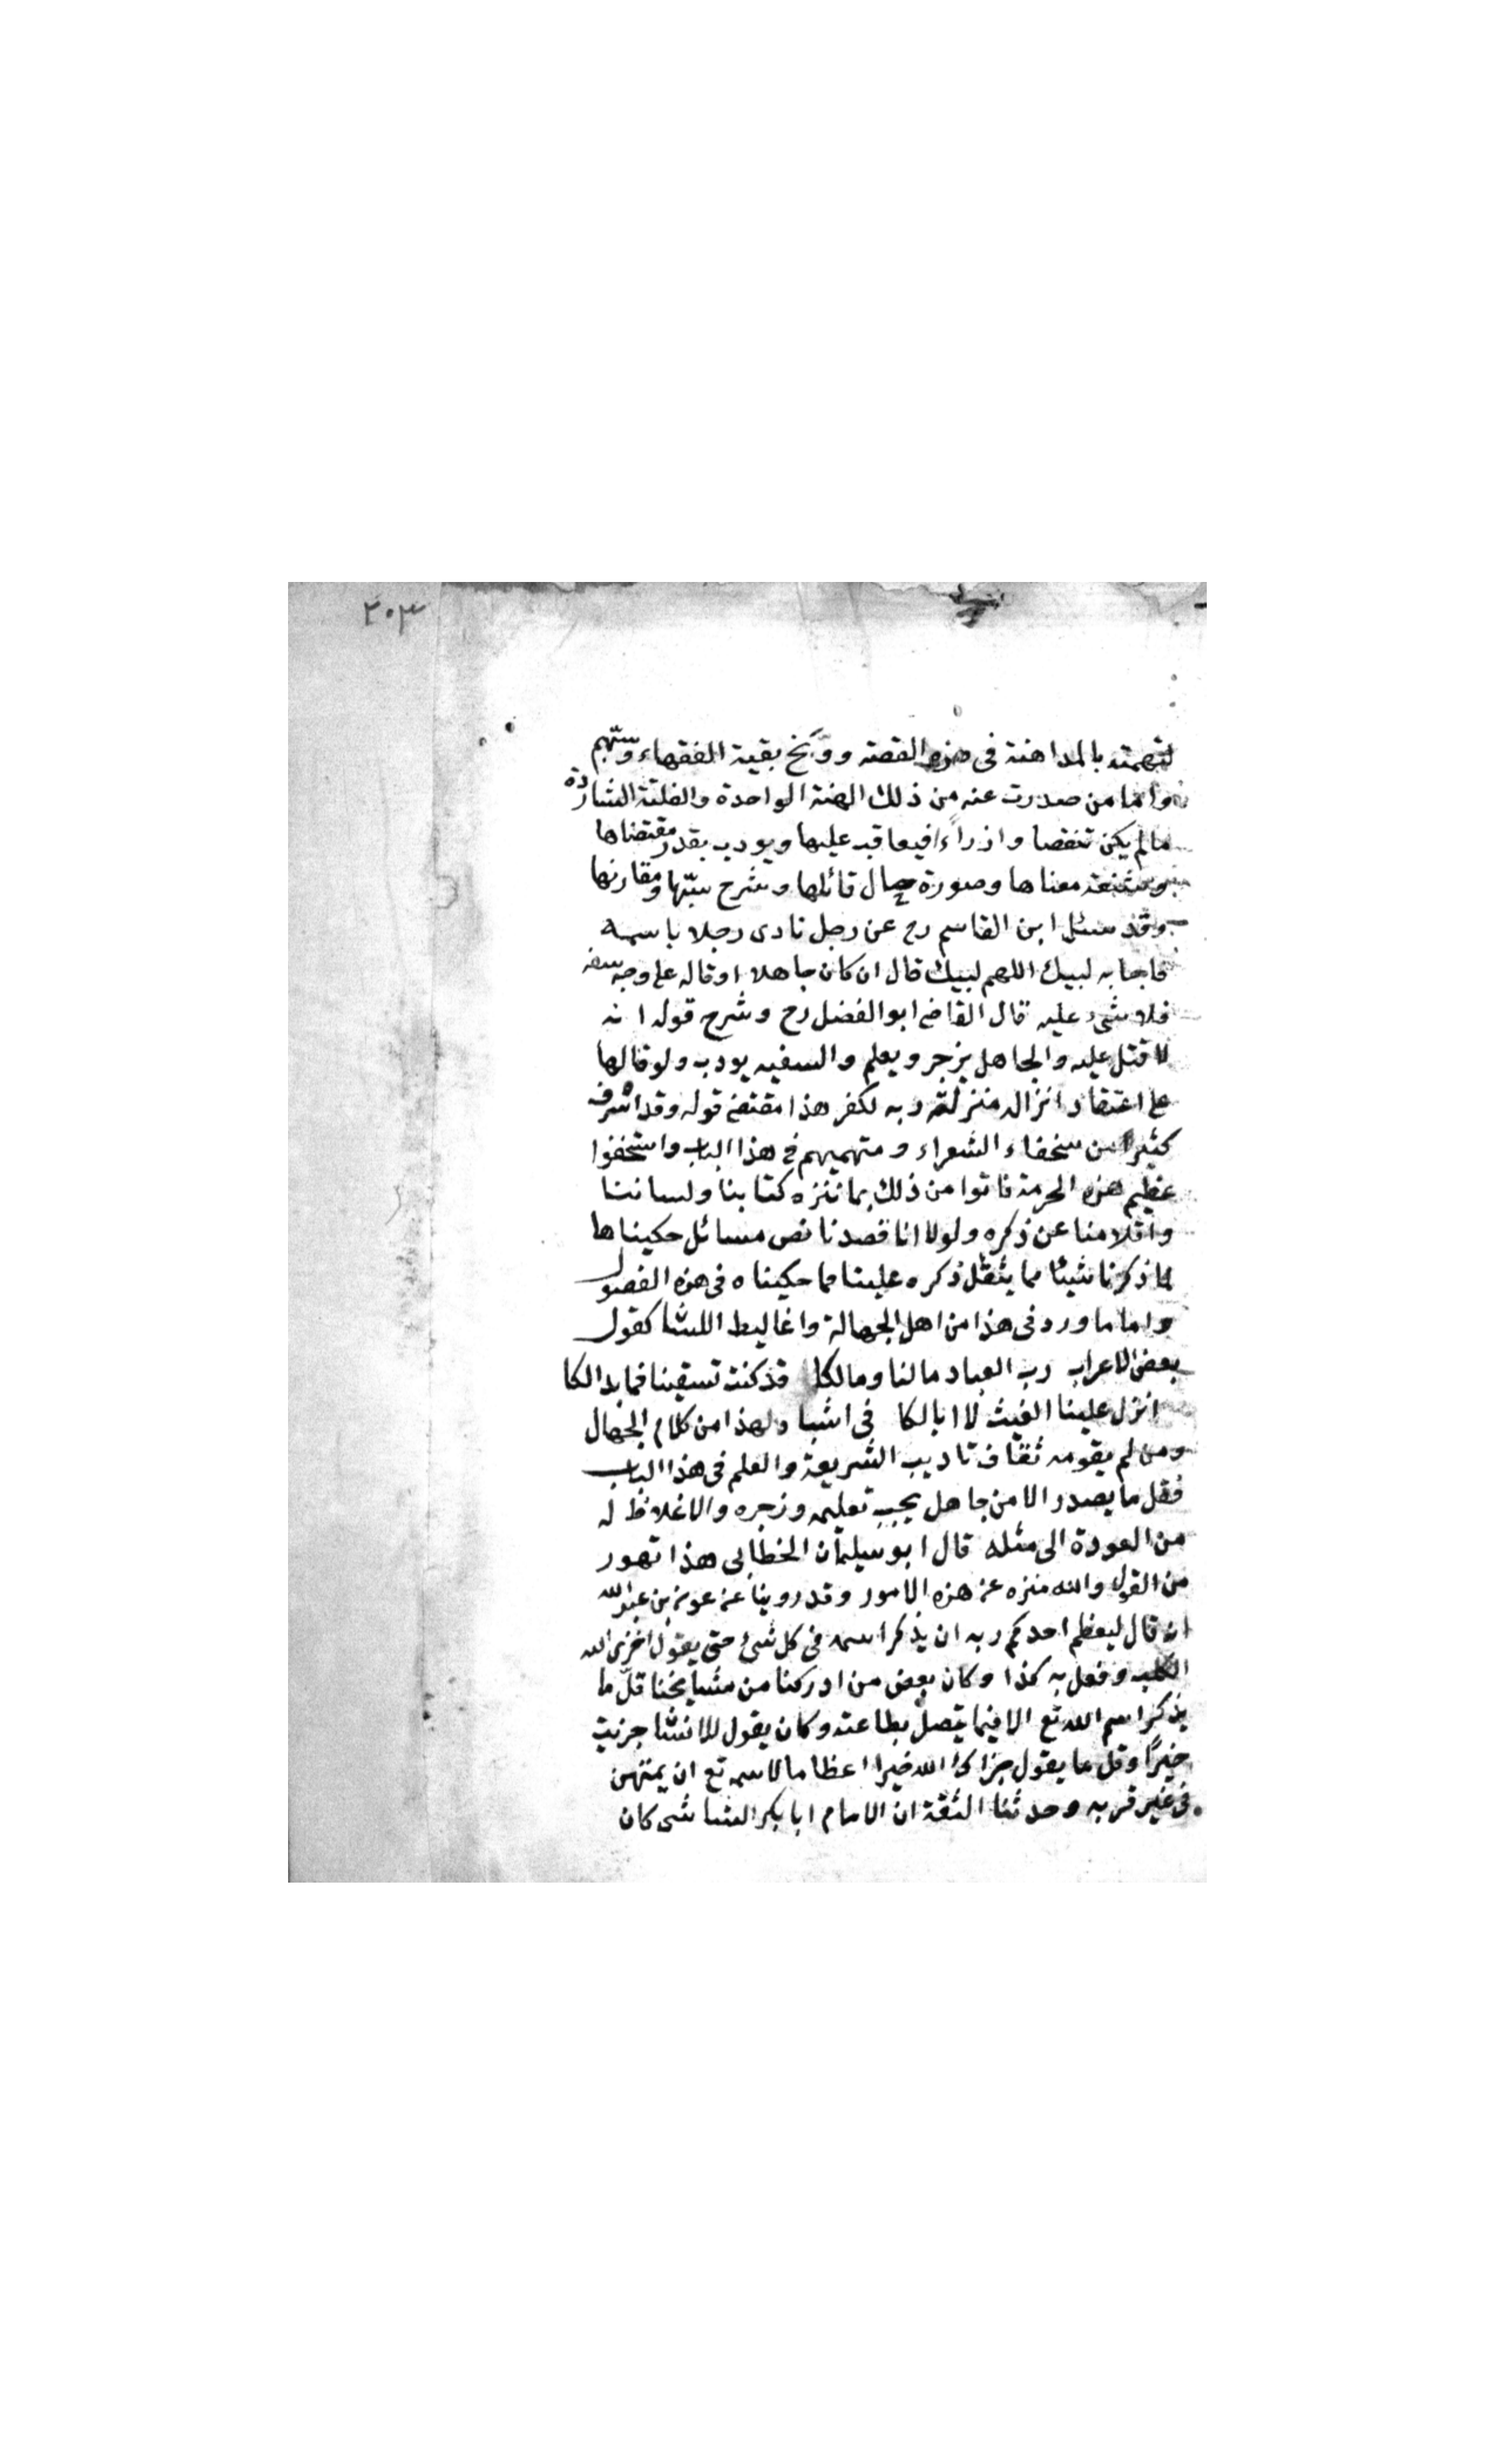 ٣٠٣
لتهمته بالمداهنة فى هذه القصة ووبخ بقية الفقهاء وسبّهم
واما من صدرت عنه من ذلك الهنة الواحدة والفلتة الشاردة
مالم يكن تنقصا وازراءً فيعاقب عليها ويودب بقدر مقتضاها
وشنعة معناها وصورة حال قائلها وشرح سببها ومقارنها
وقد سئل ابن القاسم رح عن رجل نادى رجلا باسمه
فاجابه لبيك اللهم لبيك قال ان كان جاهلا او قاله على وجه سفه
فلا شئ عليه قال القاضى ابو الفضل رح وشرح قوله انه
لا قتل عليه والجاهل يزجر ويعلم والسفيه يودب ولو قالها
على اعتقاد انزاله منزلة ربه لكفر هذا مقتضى قوله وقد اسرف
كثير من سخفاء الشعراء ومتهميهم فى هذا الباب واستخفوا
عظيم هذه الحرمة فاتوا من ذلك بما ننزه كتابنا ولساننا
واقلامنا عن ذكره ولولا انا قصدنا نص مسائل حكيناها
لما ذكرنا شيئا مما يثقل ذكره علينا مما حكيناه فى هذه الفصول
واما ما ورد فى هذا من اهل الجهالة واغاليط اللسا كقول
بعض الاعراب رب العباد مالنا ومالكا قد كنت تسقينا فما بدا لكا
انزل علينا الغيث لا ابا لكا فى اشبا ولهذا من كلام الجهال
ومن لم يقومه ثقاف تاديب الشريعة والعلم فى هذا الباب
فقل ما يصدر الا من جاهل يجب تعليمه وزجره والاغلاظ له
من العودة الى مثله قال ابو سليمان الخطابى هذا تهور
من القول والله منزه عن هذه الامور وقد روينا عن عون بن عبد الله
انه قال ليعظم احدكم ربه ان يذكر اسمه فى كل شئ حتى يقول اخزى الله
الكلب وفعل به كذا وكان بعض من ادركنا من مشايخنا قلّ ما
يذكر اسم الله تع الا فيما يتصل بطاعته وكان يقول للانشا جزيت
خيرًا وقل ما يقول جزاك الله خيرا اعظاما لاسمه تع ان يمتهن
فى غير قربه وحدثنا الثقة ان الامام ابا بكر الشاشى كان